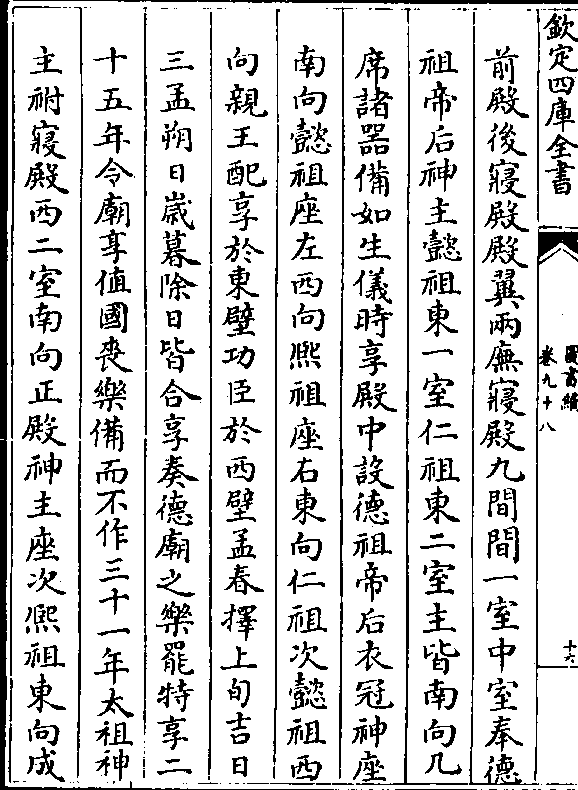 欽定四庫全書
圖書編
卷九十八
十六
前殿後寢殿殿翼兩廡寢殿九間間一室中室奉德
祖帝后神主懿祖東一室仁祖東二室主皆南向几
席諸器備如生儀時享殿中設德祖帝后衣冠神座
南向懿祖座左西向熈祖座右東向仁祖次懿祖西
向親王配享於東壁功臣於西壁孟春擇上旬吉日
三孟朔日嵗暮除日皆合享奏德廟之樂罷特享二
十五年令廟享值國喪樂備而不作三十一年太祖神
主祔寢殿西二室南向正殿神主座次熈祖東向成